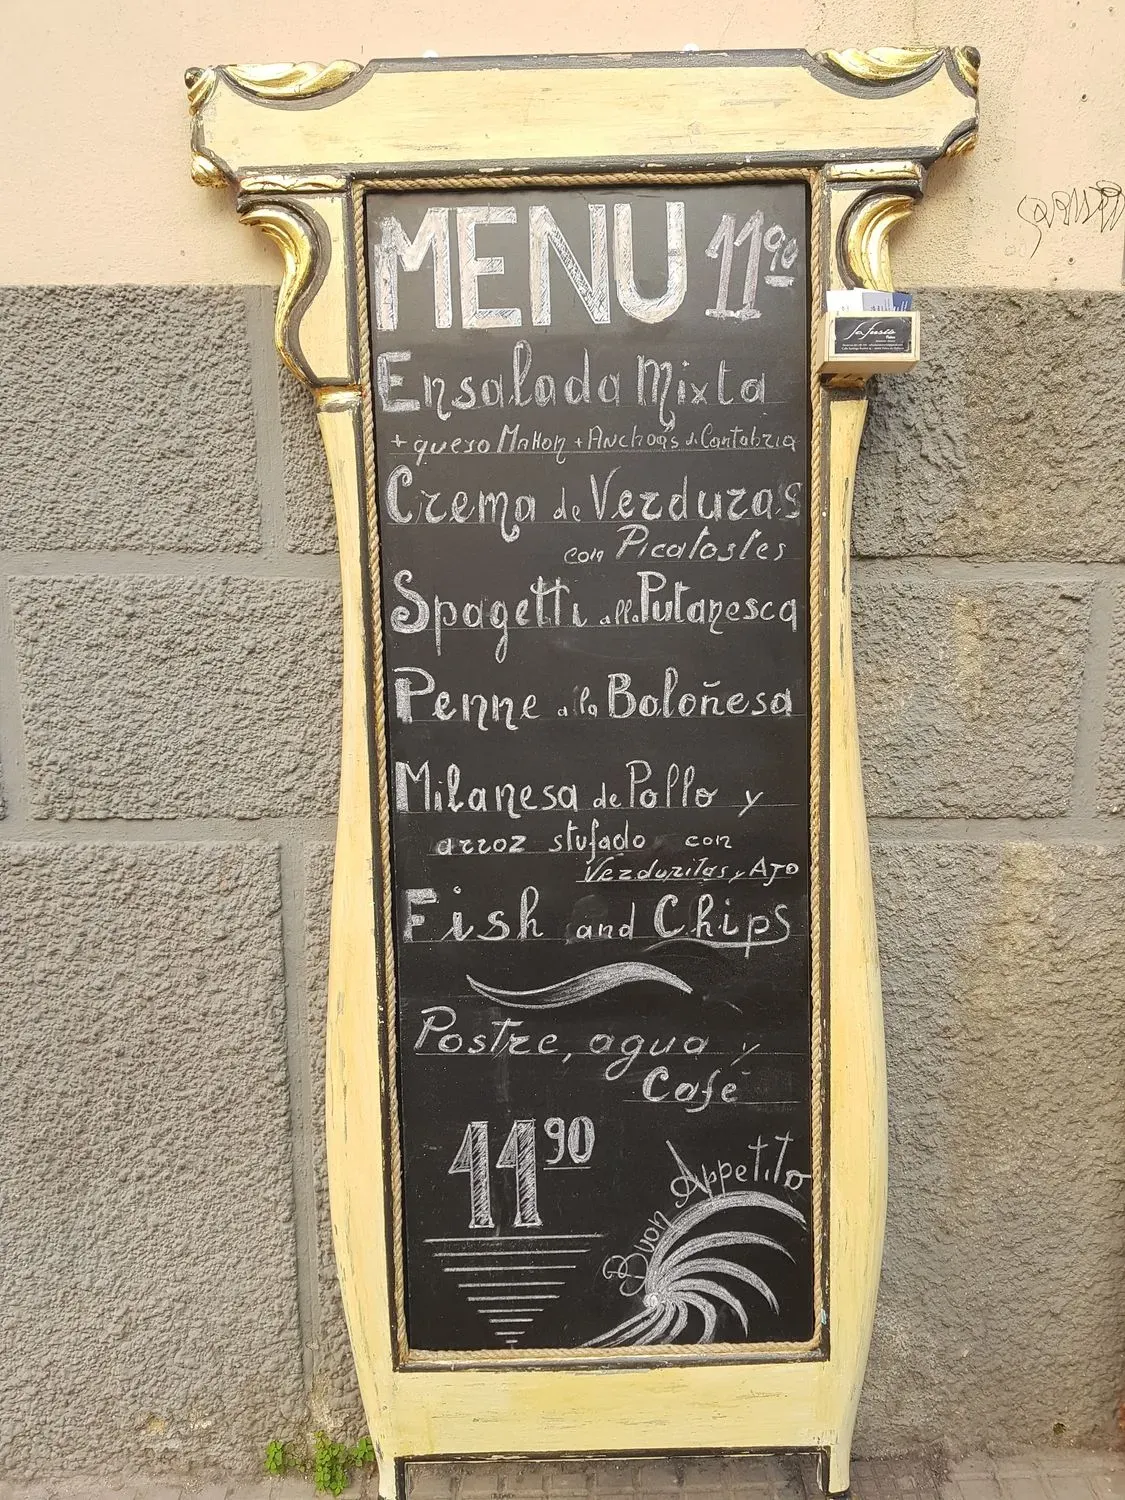 MENU 11.90
Ensalada Mixta
+ queso Mahon + Anchoas de Cantabria
Crema de Verduras
con Picatostes
Spagetti alla Putanesca
Penne a la Boloñesa
Milanesa de Pollo y
arroz stufado con
Verduritas y Ajo
Fish and Chips
Postre, agua y
Café
11 90
Buon Appetito